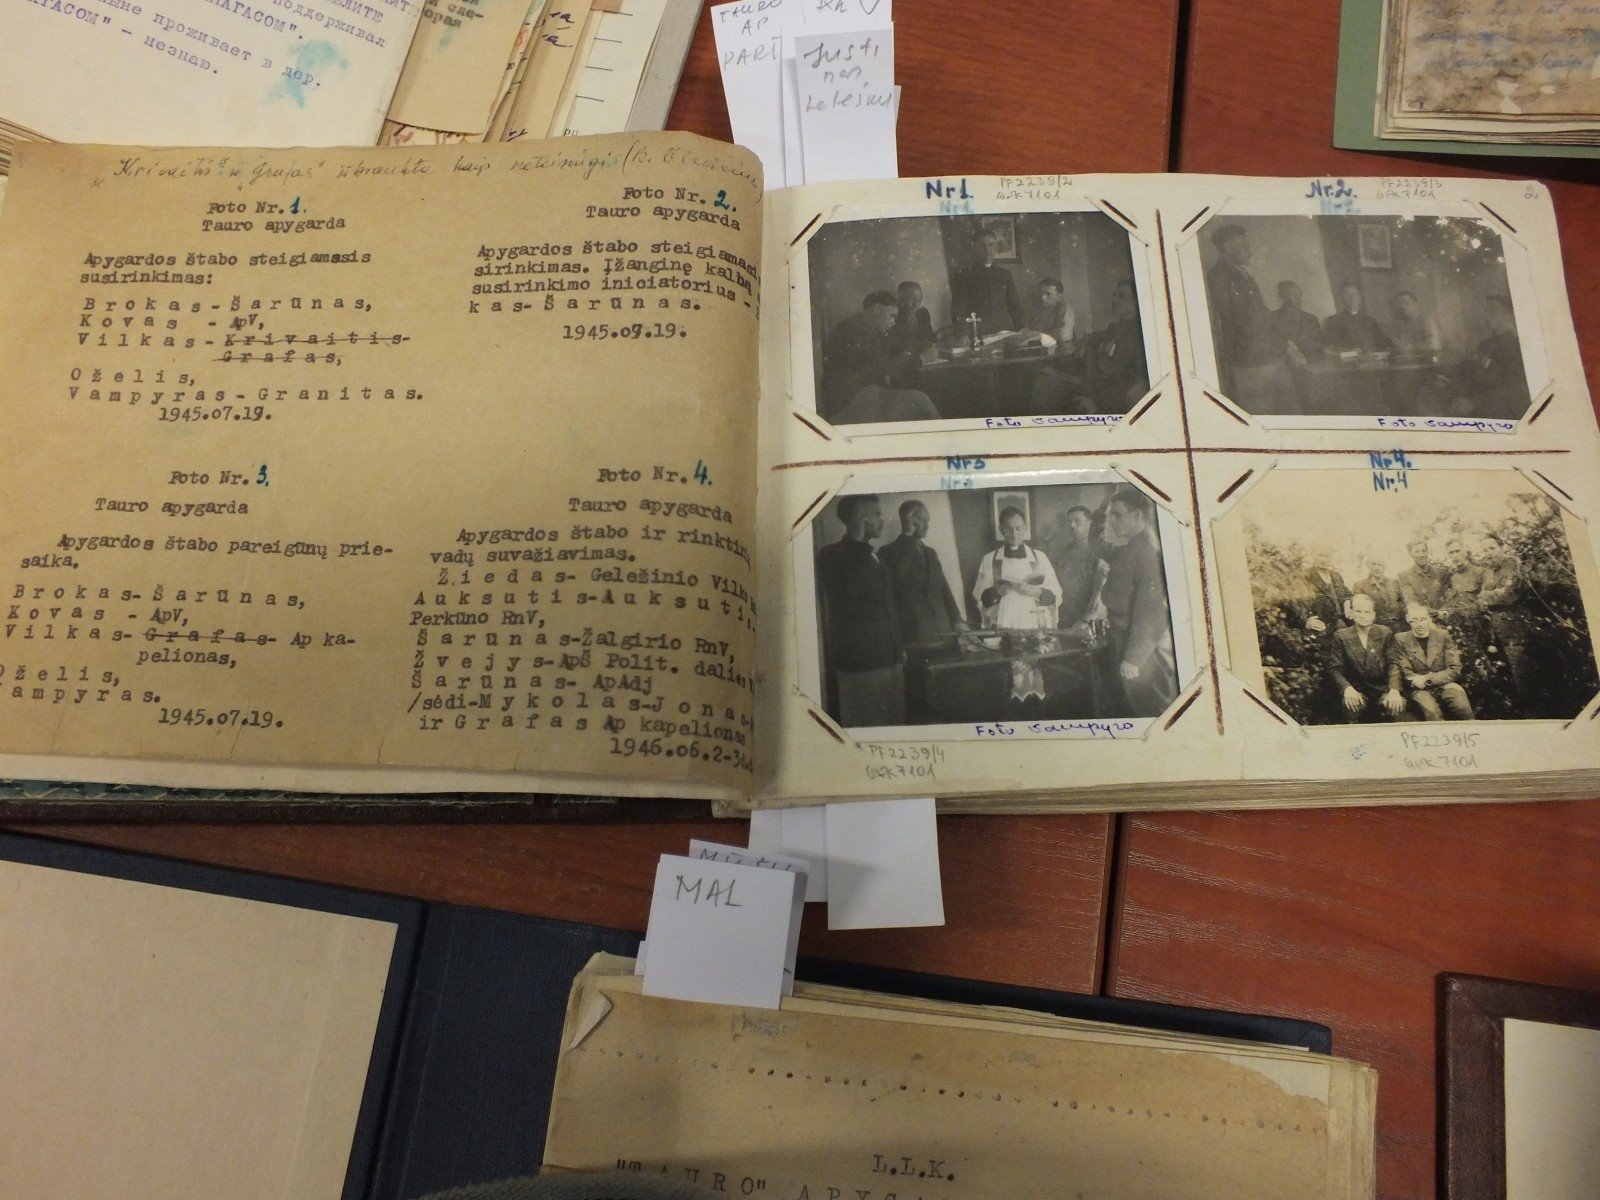 ЕЛИТЕ
ПАГАСОМ".
поддерживал
КАГАСОМ"
ныне проживает в дер.
- незнаю.
TAURO
AP
PART
Justi
nas
"Krivaitis" ir "Grafas" išbraukta kaip neteisingi
Foto Nr. 1.
Tauro apygarda
Apygardos štabo steigiamasis
susirinkimas:
Brokas-Šarūnas,
Kovas - ApV,
Vilkas-Krivaitis-
Grafas,
Oželis,
Vampyras-Granitas.
1945.07.19.
Foto Nr. 2.
Tauro apygarda
Apygardos štabo steigiamasis
sirinkimas. Įžanginę kalbą
susirinkimo iniciatorius -
kas-Šarūnas.
1945.07.19.
Foto Nr. 3.
Tauro apygarda
Apygardos štabo pareigūnų prie-
saika.
Brokas-Šarūnas,
Kovas - ApV,
Vilkas-Grafas- Ap ka-
pelionas,
Oželis,
ampyras.
1945.07.19.
Foto Nr. 4.
Tauro apygarda
Apygardos štabo ir rinktinių
vadų suvažiavimas.
Žiedas- Geležinio Vilko
Auksutis-Auksutis
Perkūno RnV,
Šarūnas-Žalgirio RnV,
Žvejys-ApŠ Polit. dalies
Šarūnas- ApAdj
/sėdi-Mykolas-Jonas-
ir Grafas Ap kapelionas
1946.06.2-3d.
Nr1
Nr1
PF2239/2
GEK7101
Foto Vampyro
Nr.2.
Nr2.
PF2239/3
GEK7101
2.
Foto Vampyro
Nr3
Nr3
Foto Vampyro
PF2239/4
GEK7101
Nr.4.
Nr.4
PF2239/5
GEK7101
MAL
L.L.K.
"TAURO" APYGA